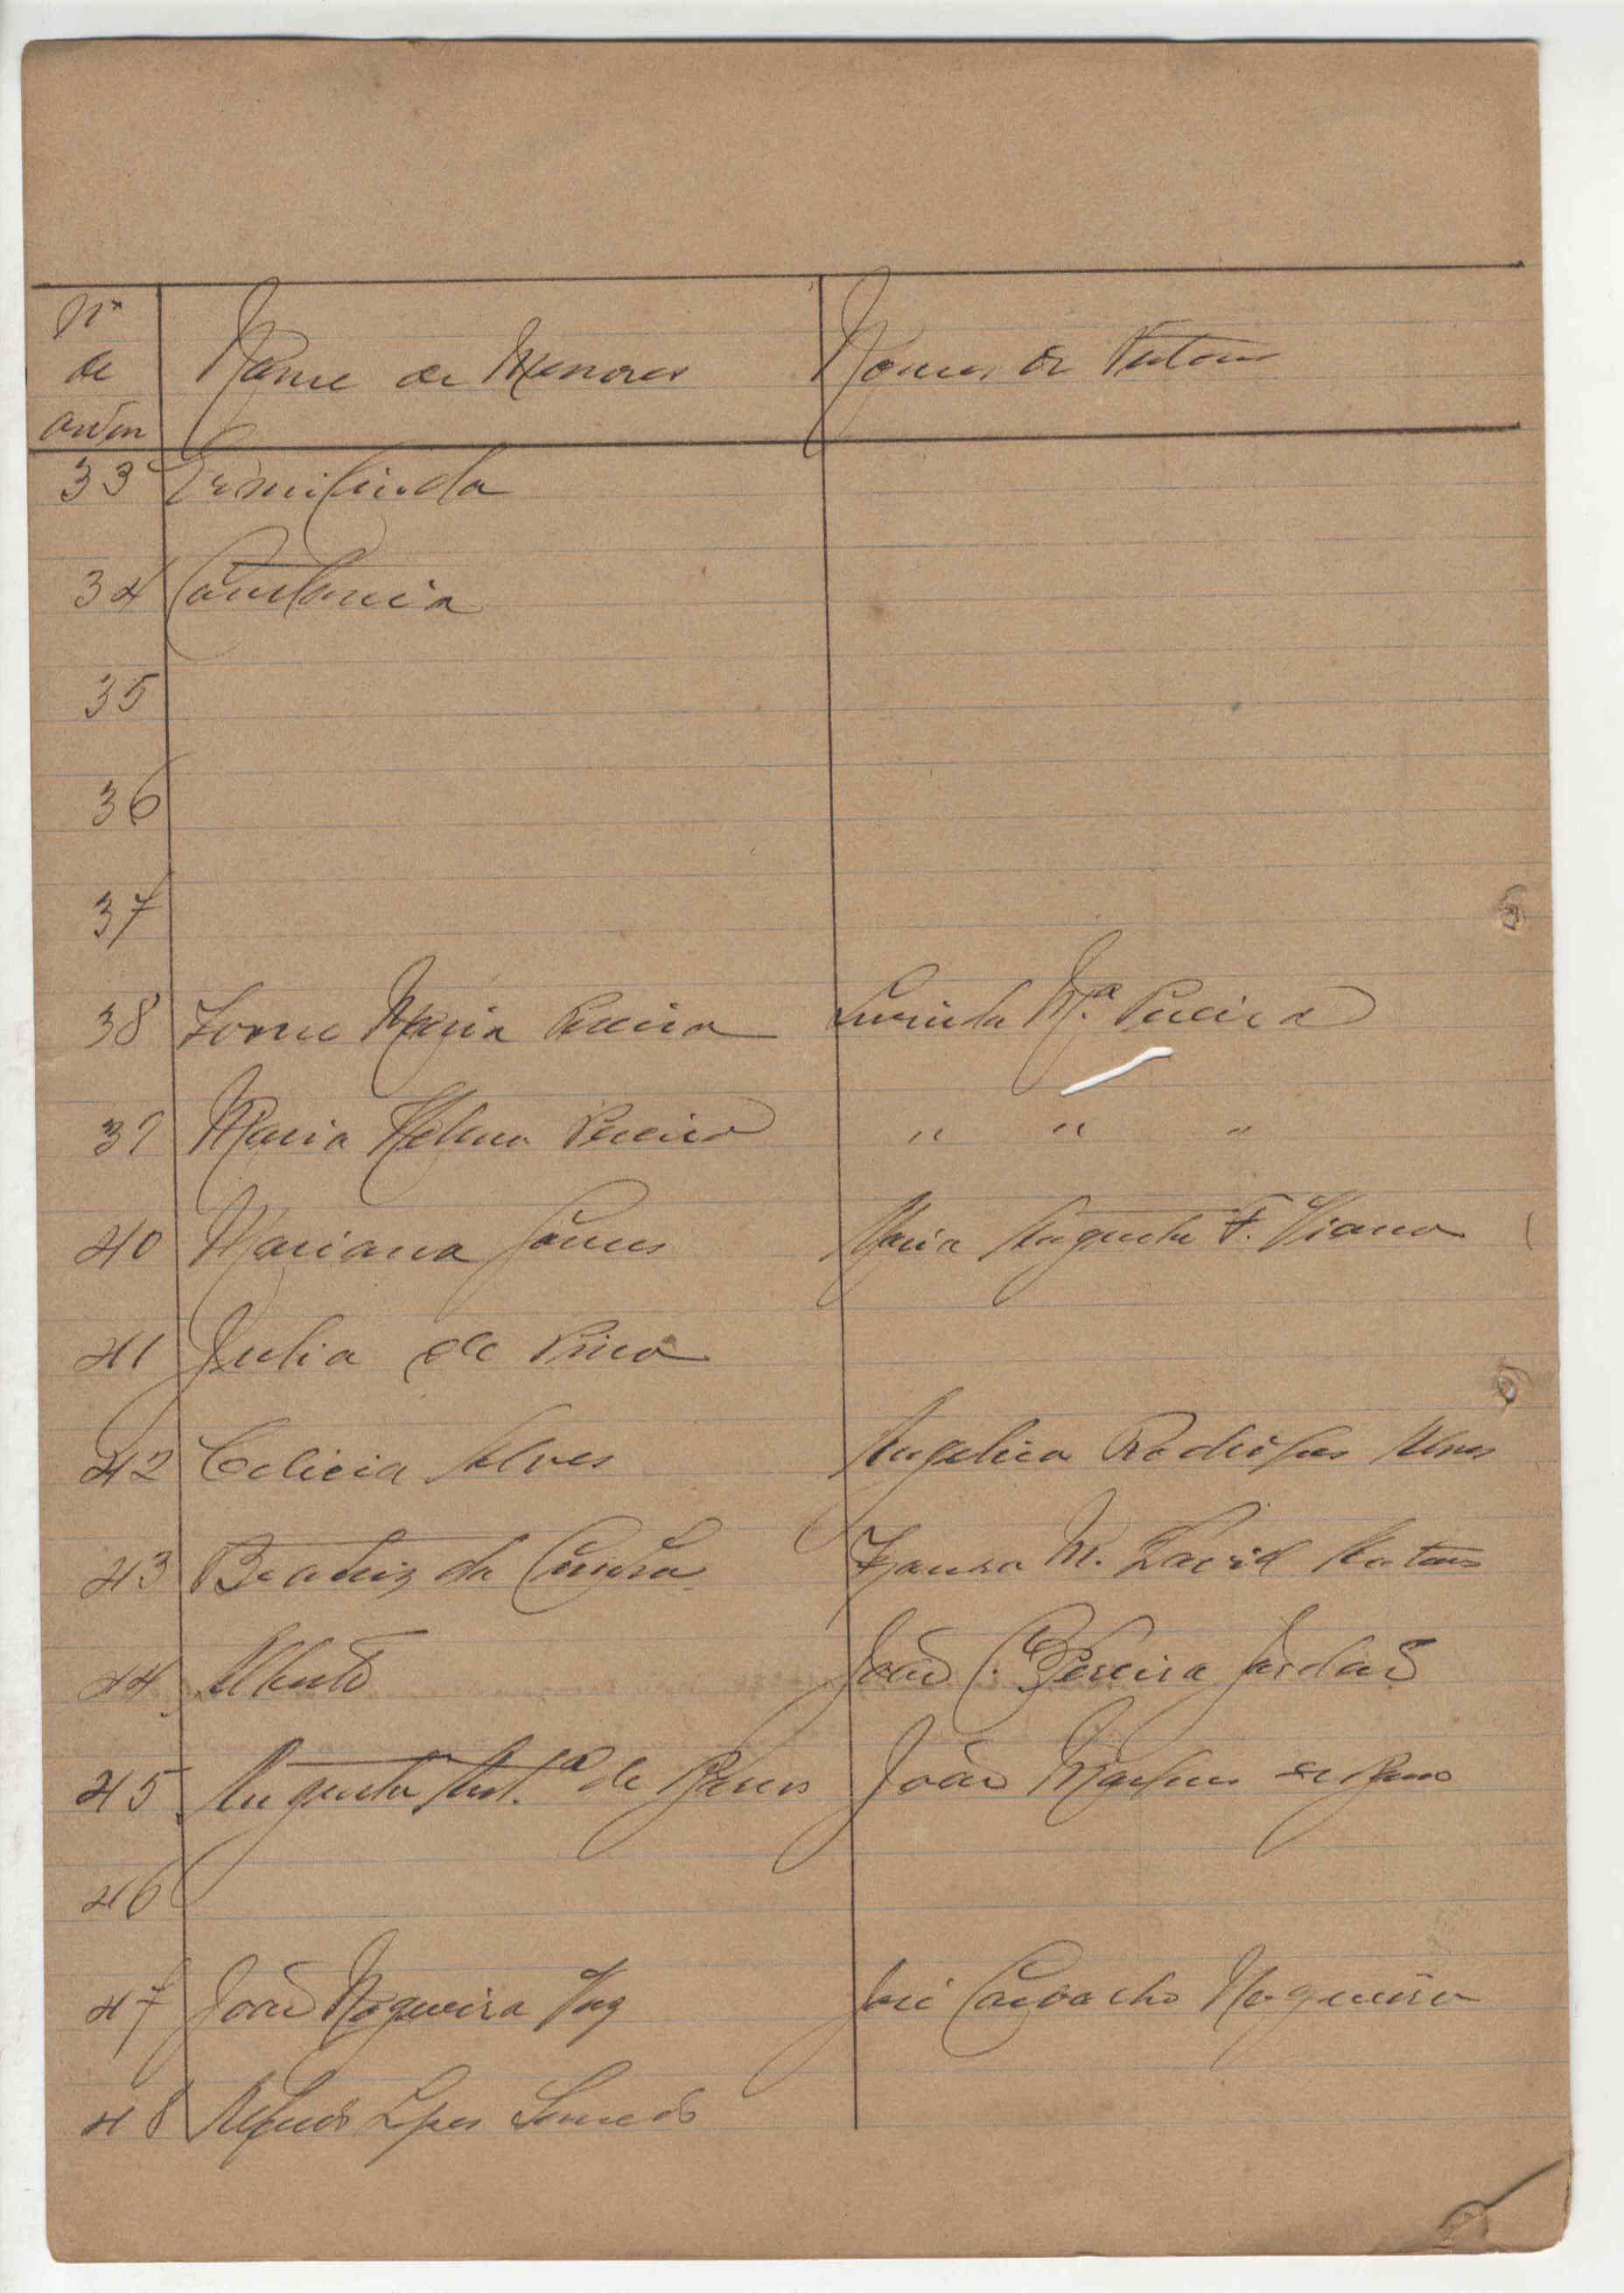 Nº de ordem Nome de Menores Nomes de Tutores
33 Ermilinda
34 Constancia
35
36
37
38 Maria Pereira Lucinda Mª Pereira
39 Maria Helena Pereira " " "
40 Mariana Gomes Maria Augusta F. Viana
41 Julia de
42 Celicia Alves Angelica Rodrigues Alves
43 Beatriz da Cunha M. David
44 Alberto João C. Pereira Jordaõ
45 Augusta Antª de Barros João Martins de Barros
46
47 João Nogueira Vaz José Carvalho Nogueira
48 Alfredo Lopes